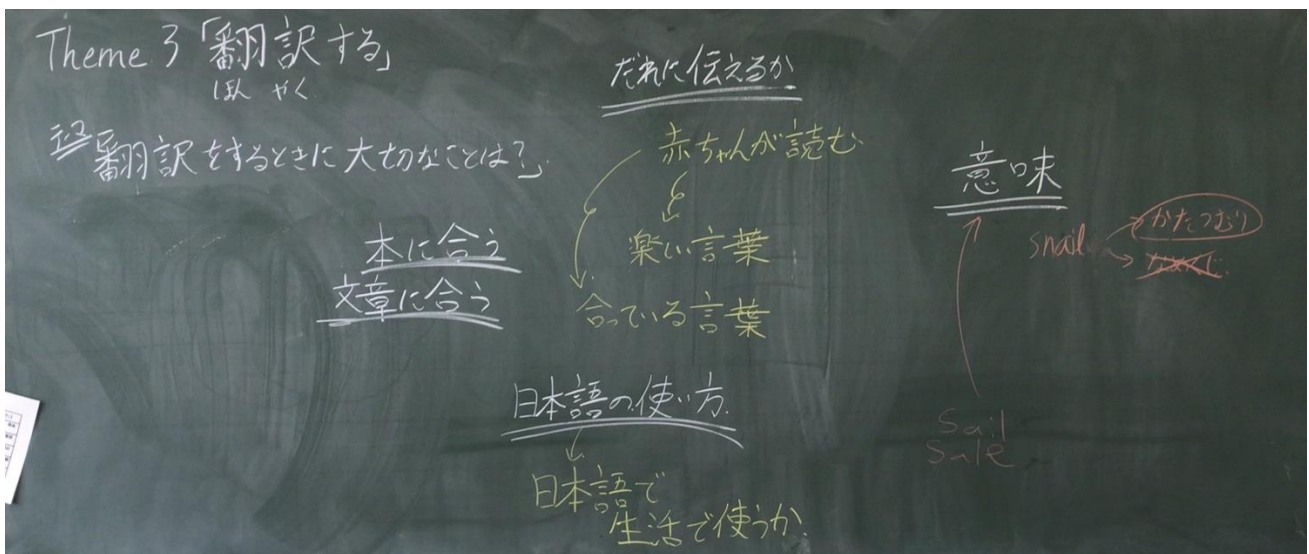 Theme 3「翻訳する」
ほん やく
テーマ 翻訳をするときに大切なことは?」
本に合う
文章に合う
だれに伝えるか
赤ちゃんが読む
楽しい言葉
合っている言葉
日本語の使い方
日本語で
生活で使うか
意味
snail
かたつむり
Sail
Sale